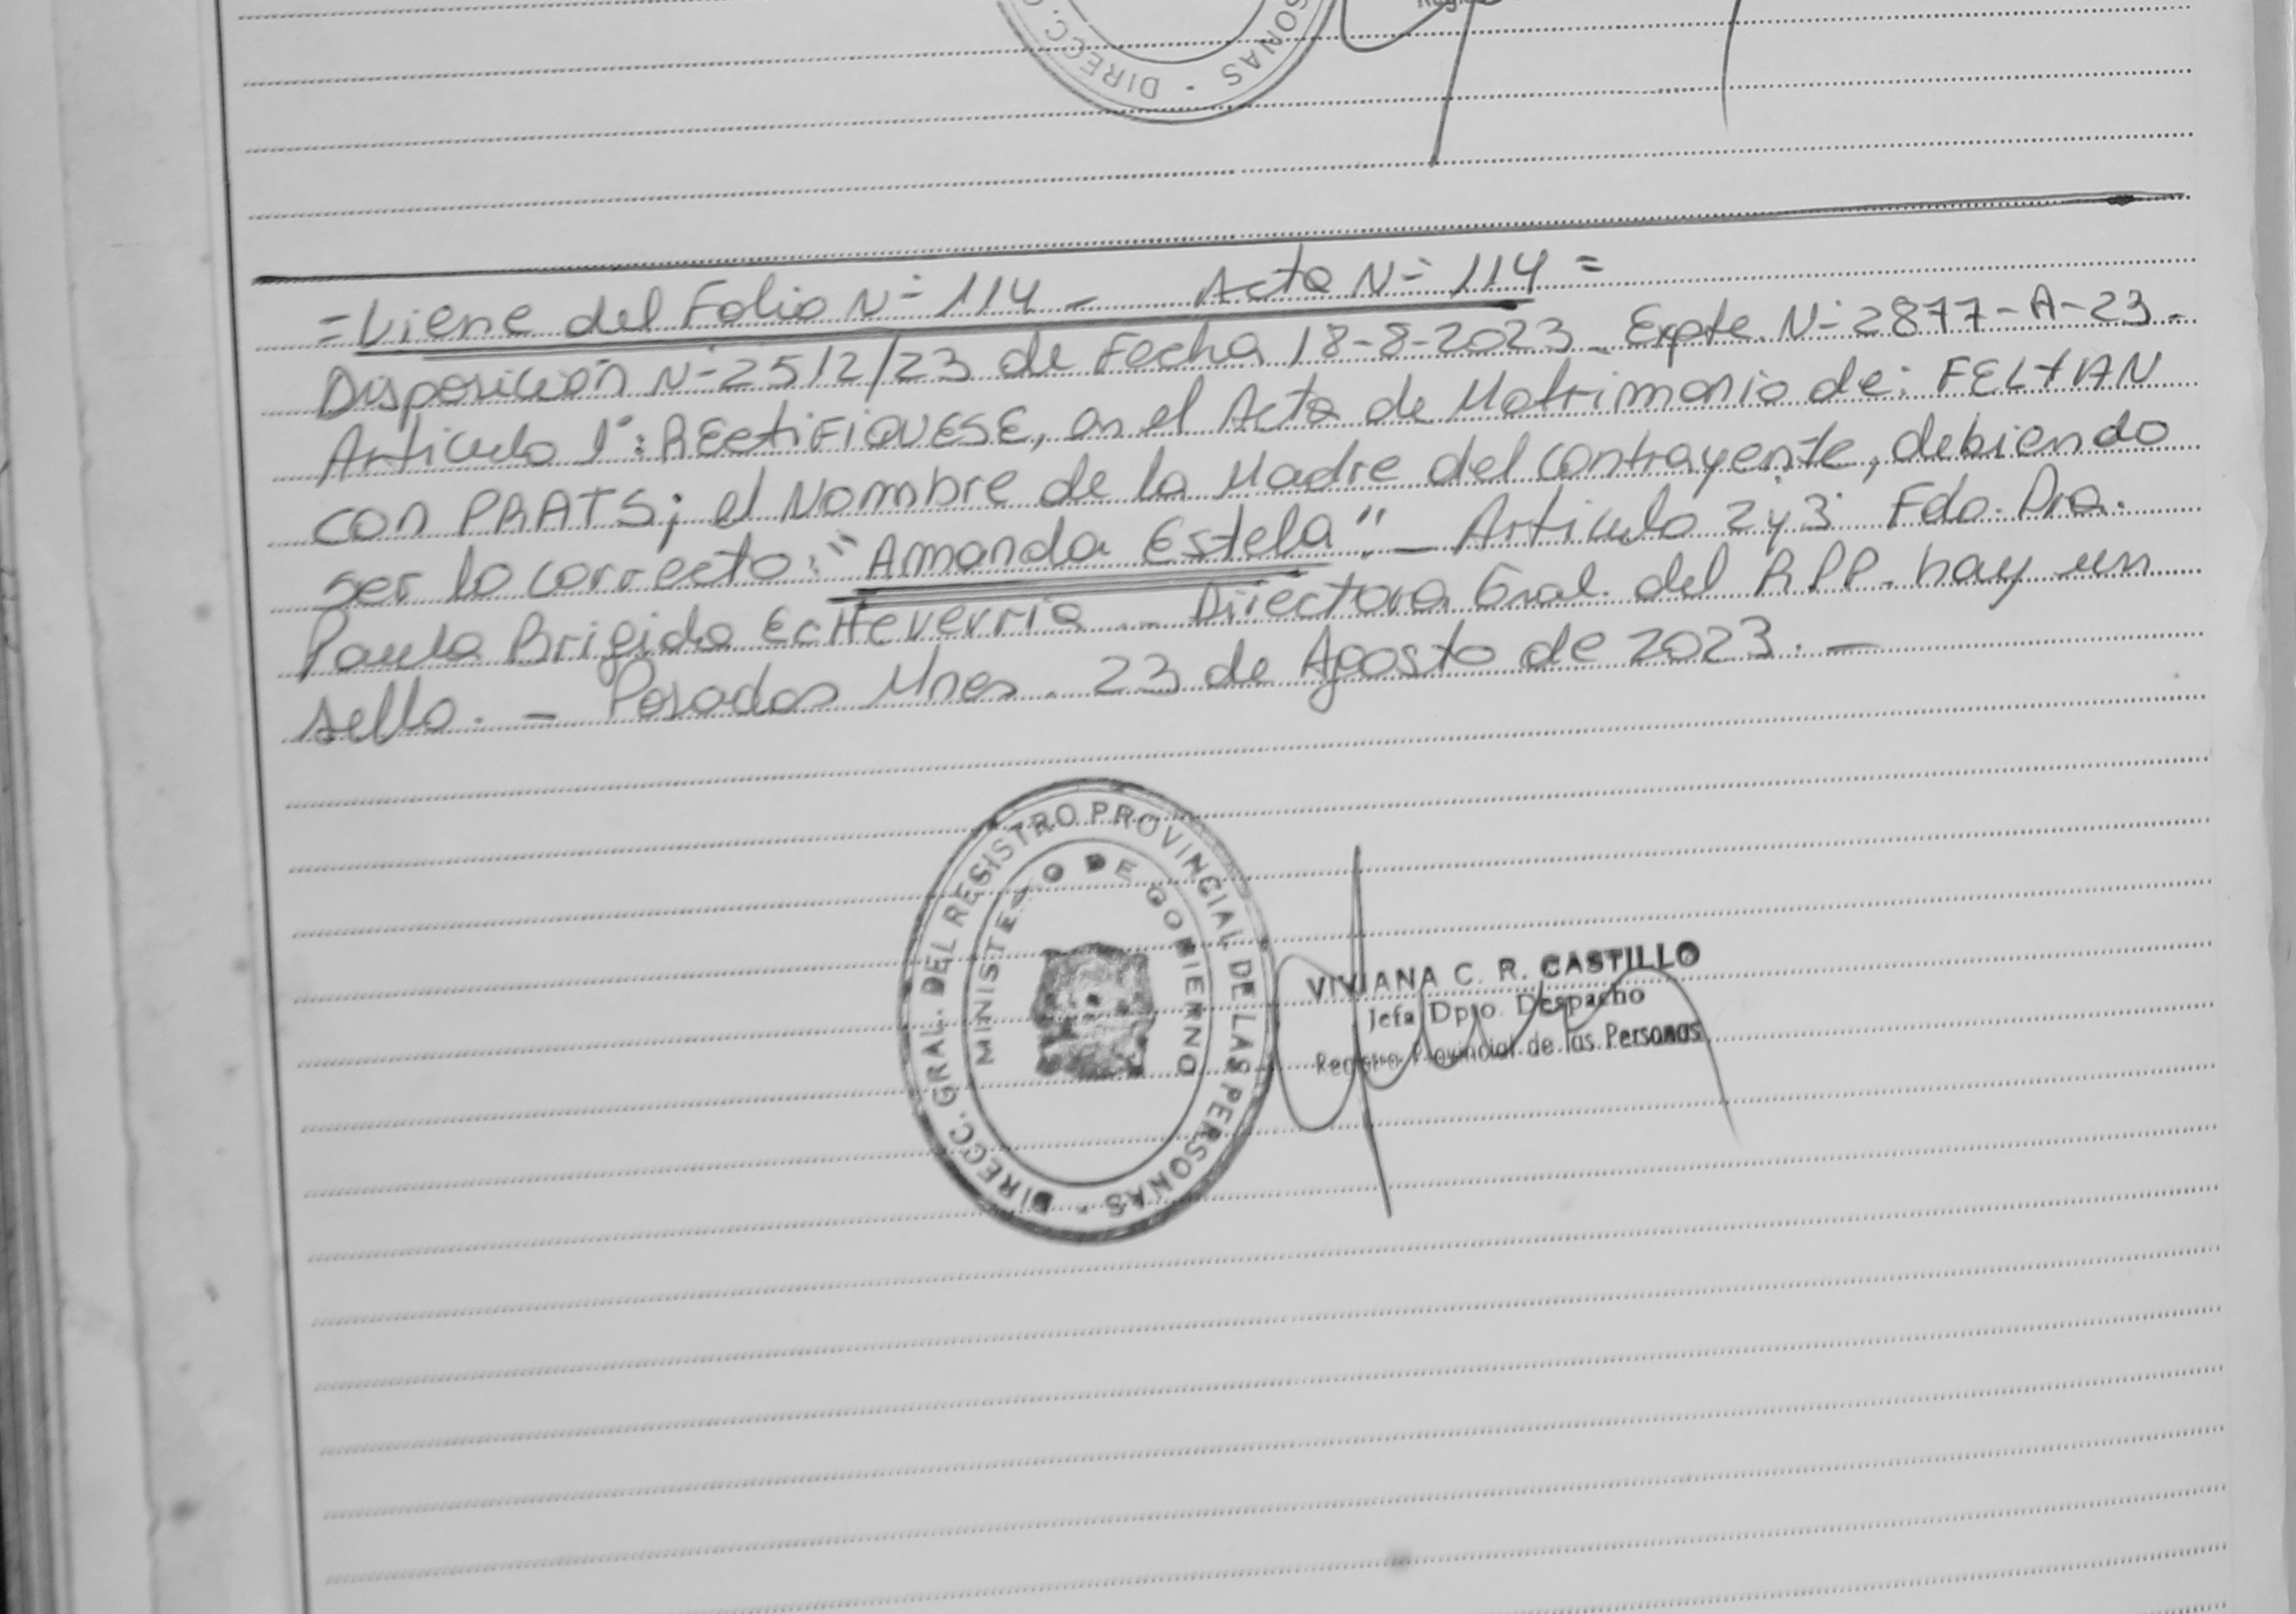 DIRECC. SONAS -
=Viene del Folio N° 114 - Acta N° 114 =
Disposición N° 2512/23 de Fecha 18-8-2023 - Expte. N° 2877-A-23 -
Articulo 1°: REctiFIQUESE, en el Acta de Matrimonio de: FELTAN
con PRATS; el Nombre de la Madre del contrayente, debiendo
ser lo correcto: "Amanda Estela" - Articulo 2 y 3 Fdo. Dra.
Paula Brigida EcHeverria - Directora Gral. del RPP. hay un
sello. - Posadas Mnes. 23 de Agosto de 2023. -
DIRECC. GRAL. DEL REGISTRO PROVINCIAL DE LAS PERSONAS -
MINISTERIO DE GOBIERNO
VIVIANA C. R. CASTILLO
Jefa Dpto. Despacho
Registro Provincial de las Personas